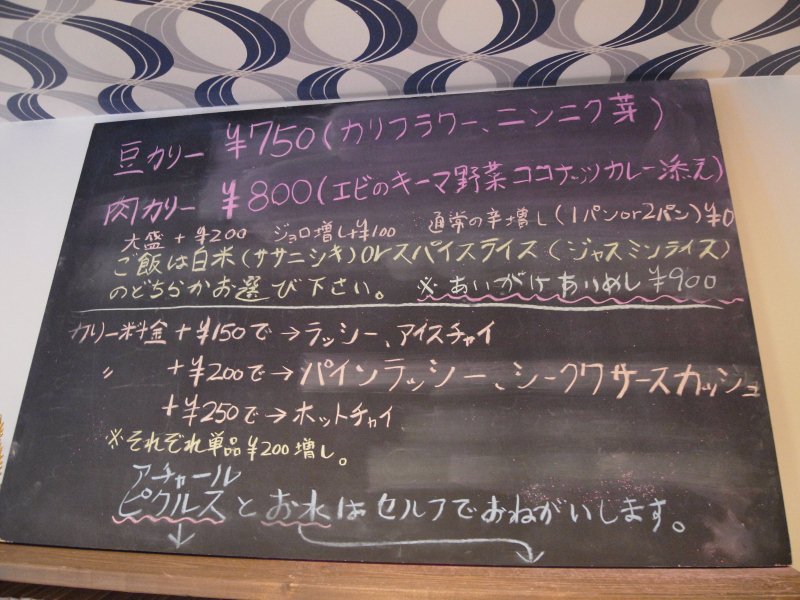 豆カリー ¥750(カリフラワー、ニンニク芽)
肉カリー ¥800(エビのキーマ野菜ココナッツカレー添え)
大盛+¥200 ジョロ増し+¥100 通常の辛増し(1パンor2パン)¥0
ご飯は白米(ササニシキ)orスパイスライス(ジャスミンライス)
のどちらかお選び下さい。 ※あいがけあいめし¥900
カリー料金+¥150で→ラッシー、アイスチャイ
〃 +¥200で→パインラッシー、シークワサースカッシュ
+¥250で→ホットチャイ
※それぞれ単品¥200増し。
アチャール
ピクルスとお水はセルフでおねがいします。